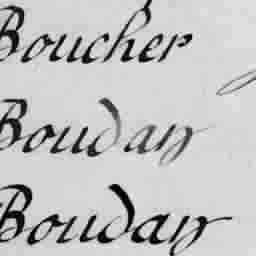 Boucher
Bouday
Bouday